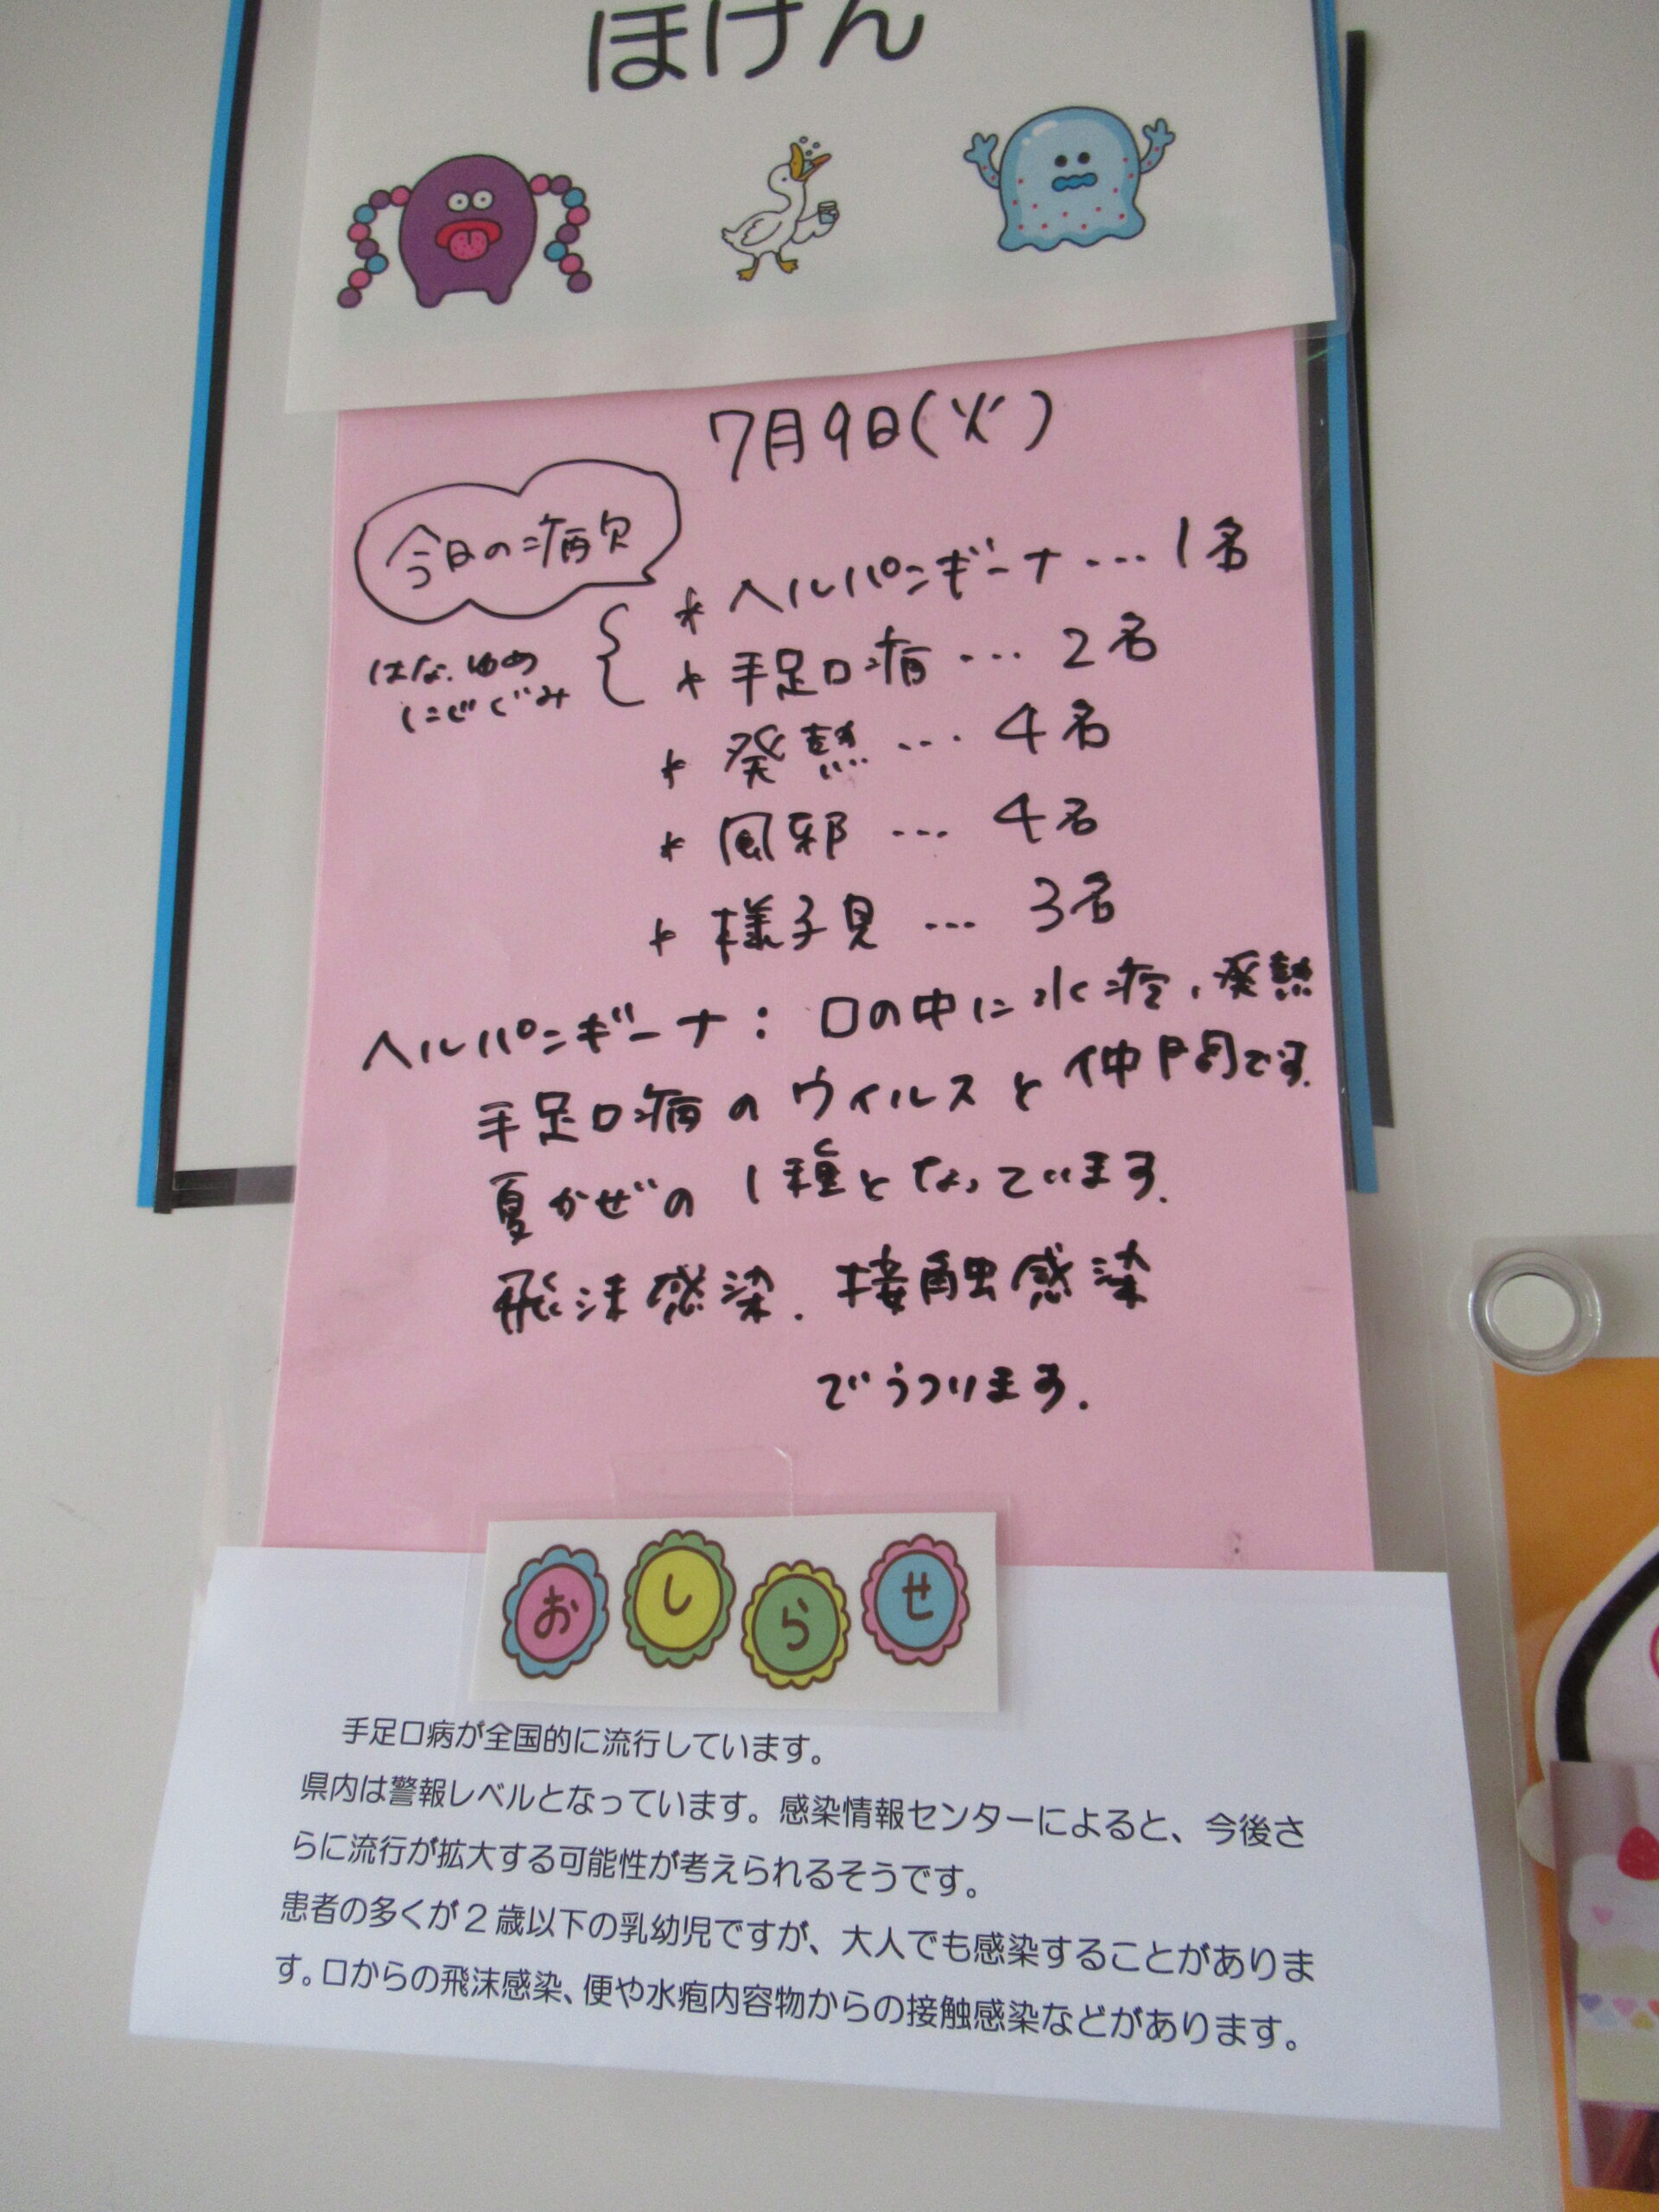 ほけん
7月9日(火)
今日の病欠
はな.ゆめ
にじぐみ
* ヘルパンギーナ … 1名
* 手足口病 … 2名
* 発熱 … 4名
* 風邪 … 4名
* 様子見 … 3名
ヘルパンギーナ: 口の中に水疱、発熱
手足口病のウイルスと仲間です.
夏かぜの1種となっています.
飛沫感染.接触感染
でうつります.
おしらせ
手足口病が全国的に流行しています。
県内は警報レベルとなっています。感染情報センターによると、今後さ
らに流行が拡大する可能性が考えられるそうです。
患者の多くが2歳以下の乳幼児ですが、大人でも感染することがありま
す。口からの飛沫感染、便や水疱内容物からの接触感染などがあります。